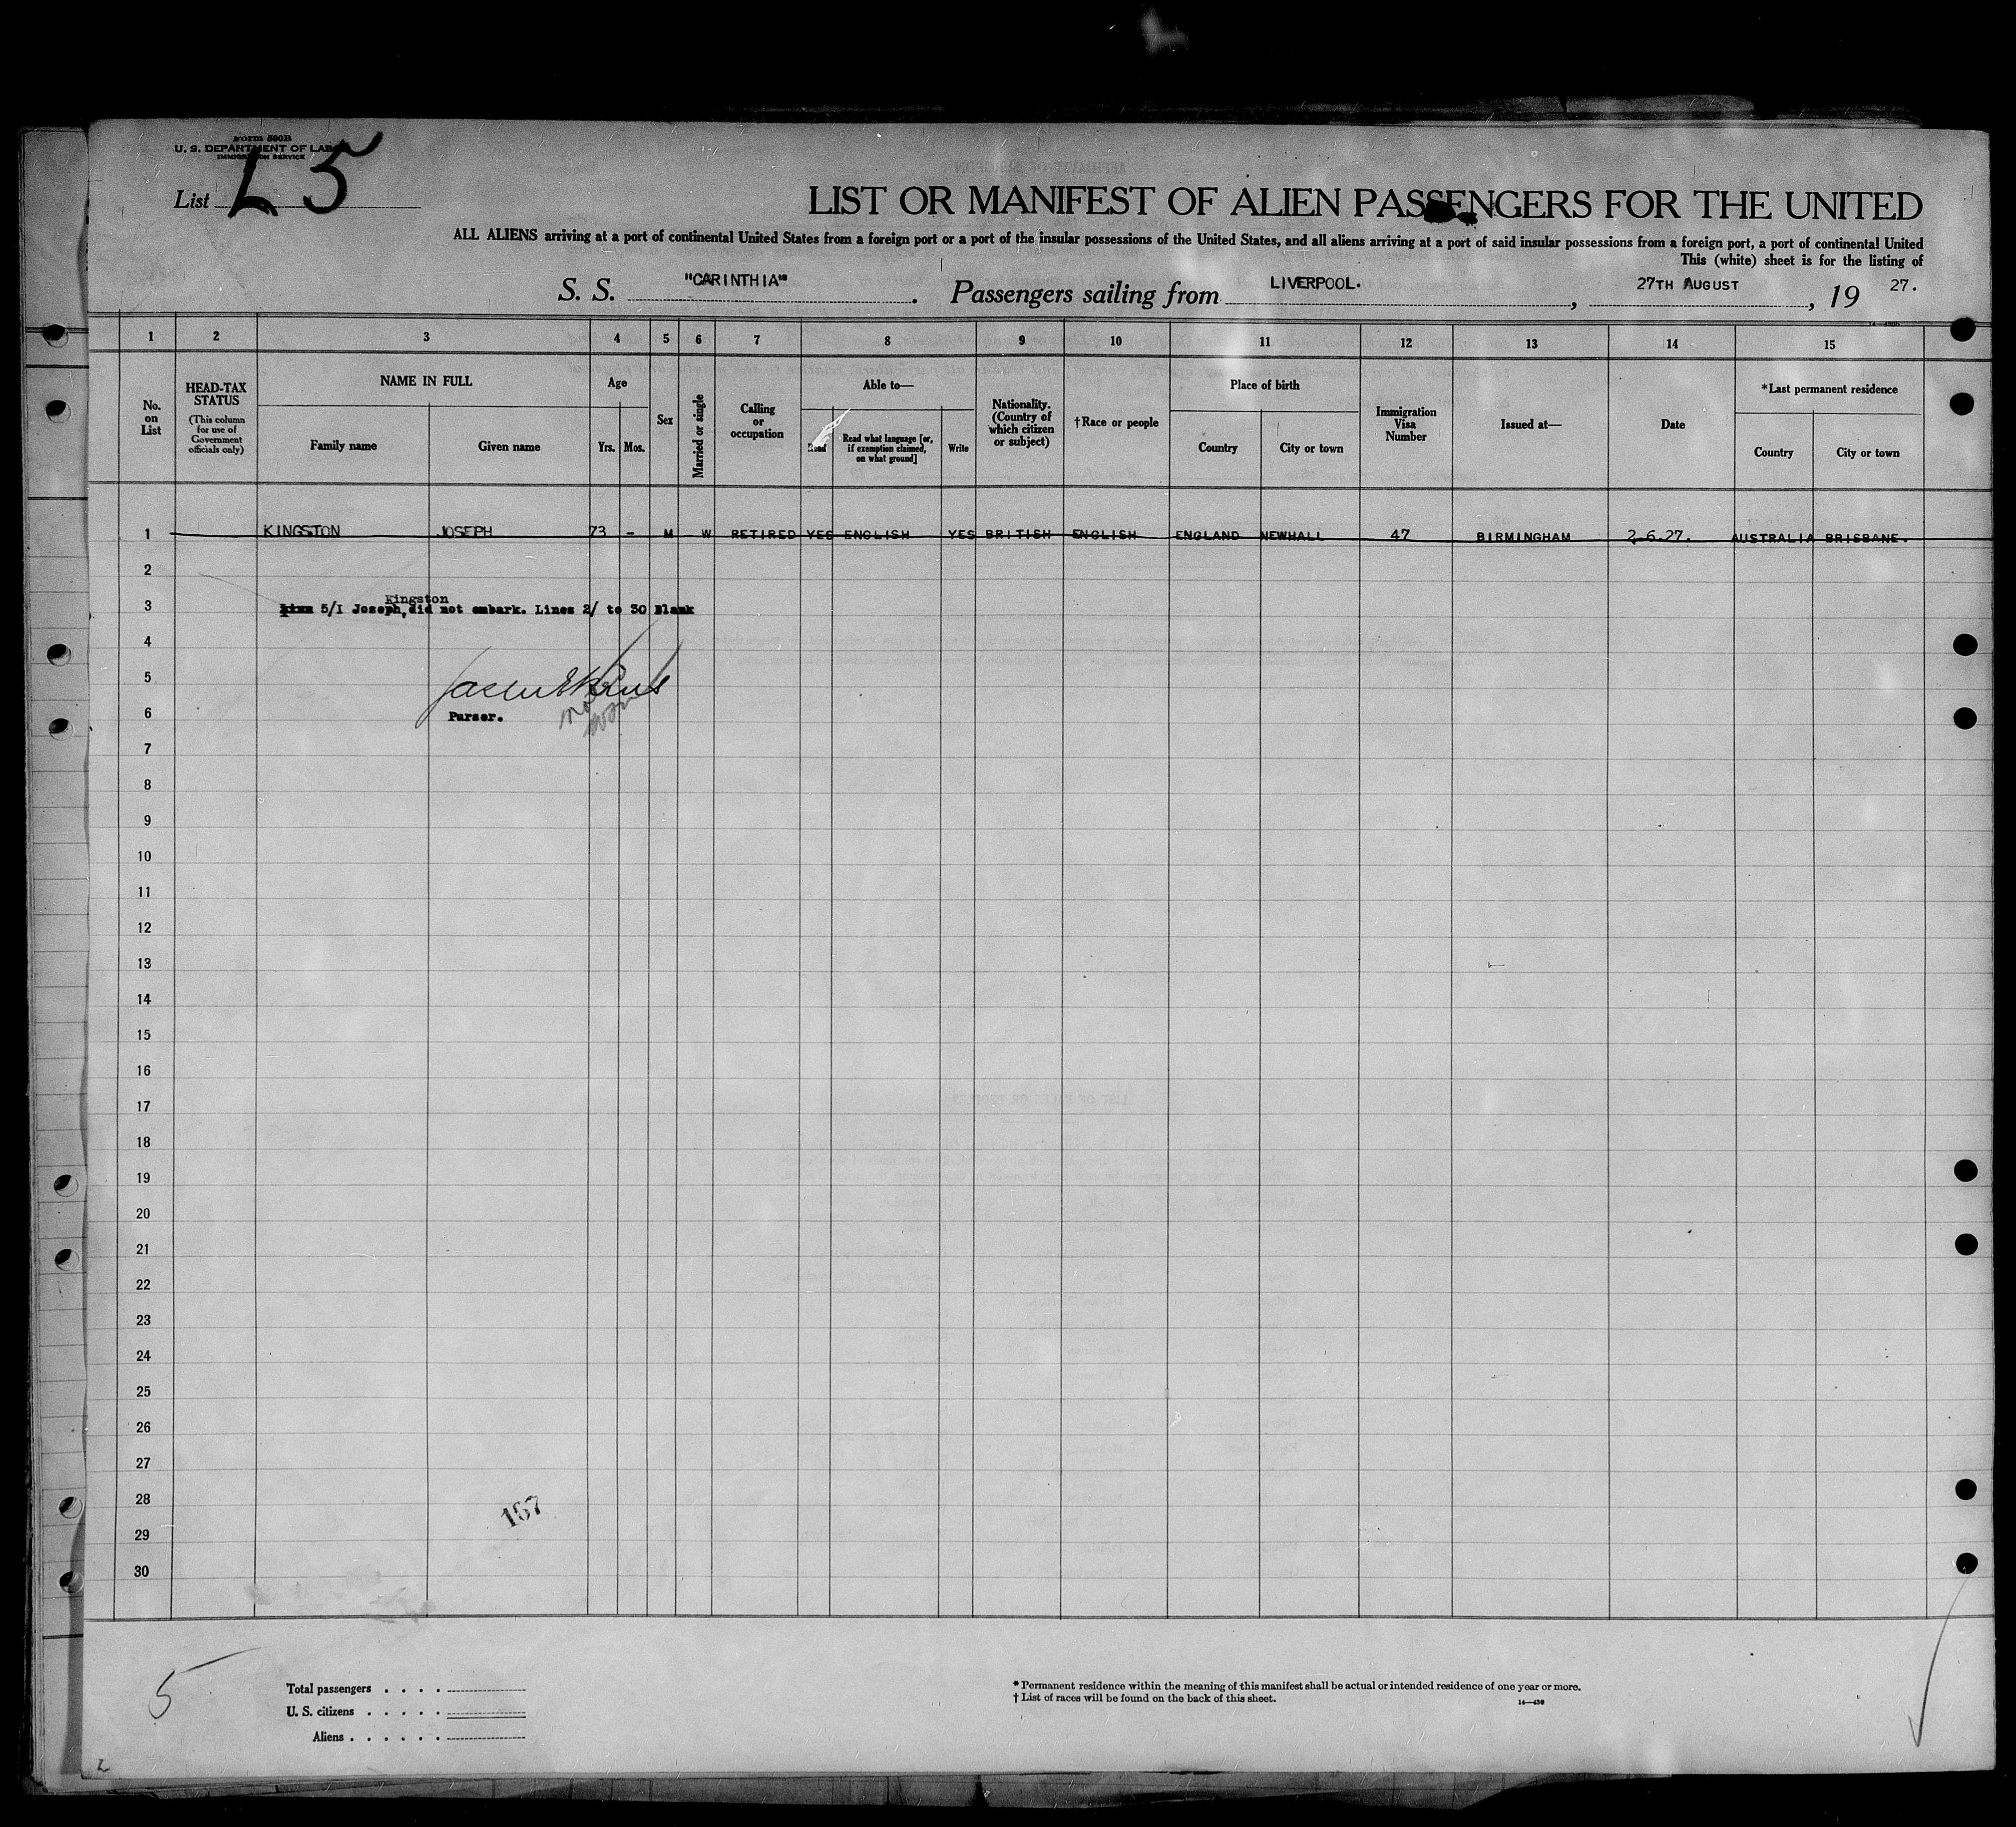 Form 500B
U. S. DEPARTMENT OF LABOR
IMMIGRATION SERVICE
List L 5
LIST OR MANIFEST OF ALIEN PASSENGERS FOR THE UNITED
ALL ALIENS arriving at a port of continental United States from a foreign port or a port of the insular possessions of the United States, and all aliens arriving at a port of said insular possessions from a foreign port, a port of continental United
This (white) sheet is for the listing of
S. S. "CARINTHIA". Passengers sailing from LIVERPOOL. , 27TH AUGUST , 19 27.
1 2 3 4 5 6 7 8 9 10 11 12 13 14 15
No. on List
HEAD-TAX STATUS
(This column for use of Government officials only)
NAME IN FULL
Family name Given name
Age
Yrs. Mos.
Sex
Married or single
Calling or occupation
Able to—
Read
Read what language [or, if exemption claimed, on what ground]
Write
Nationality. (Country of which citizen or subject)
†Race or people
Place of birth
Country City or town
Immigration Visa Number
Issued at—
Date
*Last permanent residence
Country City or town
1 KINGSTON JOSEPH 73 - M W RETIRED YES ENGLISH YES BRITISH ENGLISH ENGLAND NEWHALL 47 BIRMINGHAM 2-6.27. AUSTRALIA BRISBANE.
2
Kingston
3 5/I Joseph, did not embark. Lines 2/ to 30 Blank
4
5
6 Purser.
7
8
9
10
11
12
13
14
15
16
17
18
19
20
21
22
23
24
25
26
27
28 167
29
30
5
Total passengers . . . .
U. S. citizens . . . . .
Aliens . . . . . .
* Permanent residence within the meaning of this manifest shall be actual or intended residence of one year or more.
† List of races will be found on the back of this sheet.
14—430